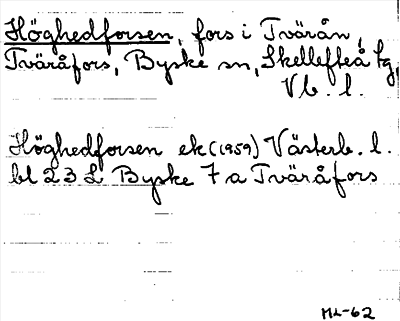 Höghedforsen, fors i Tvärån,
Tväråfors, Byske sn, Skellefteå tg,
Vb. l.
Höghedforsen ek (1959) Västerb. l.
bl 23 L Byske 7 a Tväråfors
ML-62